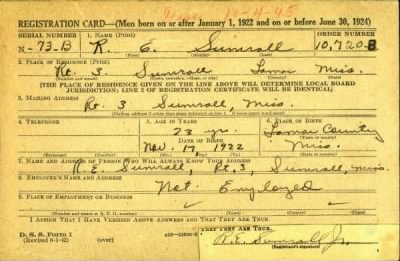 12-4-45
REGISTRATION CARD—(Men born on or after January 1, 1922 and on or before June 30, 1924)
SERIAL NUMBER 1. NAME (Print) ORDER NUMBER
N-73-B R. E. Sumrall 10,720 B
2. PLACE OF RESIDENCE (Print)
Rt. 3 Sumrall Lamar Miss.
[THE PLACE OF RESIDENCE GIVEN ON THE LINE ABOVE WILL DETERMINE LOCAL BOARD
JURISDICTION; LINE 2 OF REGISTRATION CERTIFICATE WILL BE IDENTICAL]
3. MAILING ADDRESS
Rt. 3 Sumrall, Miss.
4. TELEPHONE 5. AGE IN YEARS 6. PLACE OF BIRTH
23 yrs. Lamar County
DATE OF BIRTH
Nov. 17 1922 Miss.
7. NAME AND ADDRESS OF PERSON WHO WILL ALWAYS KNOW YOUR ADDRESS
R. E. Sumrall, Rt. 3, Sumrall, Miss.
8. EMPLOYER'S NAME AND ADDRESS
Not Employed
9. PLACE OF EMPLOYMENT OR BUSINESS
I AFFIRM THAT I HAVE VERIFIED ABOVE ANSWERS AND THAT THEY ARE TRUE.
D. S. S. Form 1
(Revised 6-1-42)
THAT THEY ARE TRUE.
R.E. Sumrall Jr.
(Registrant's signature)